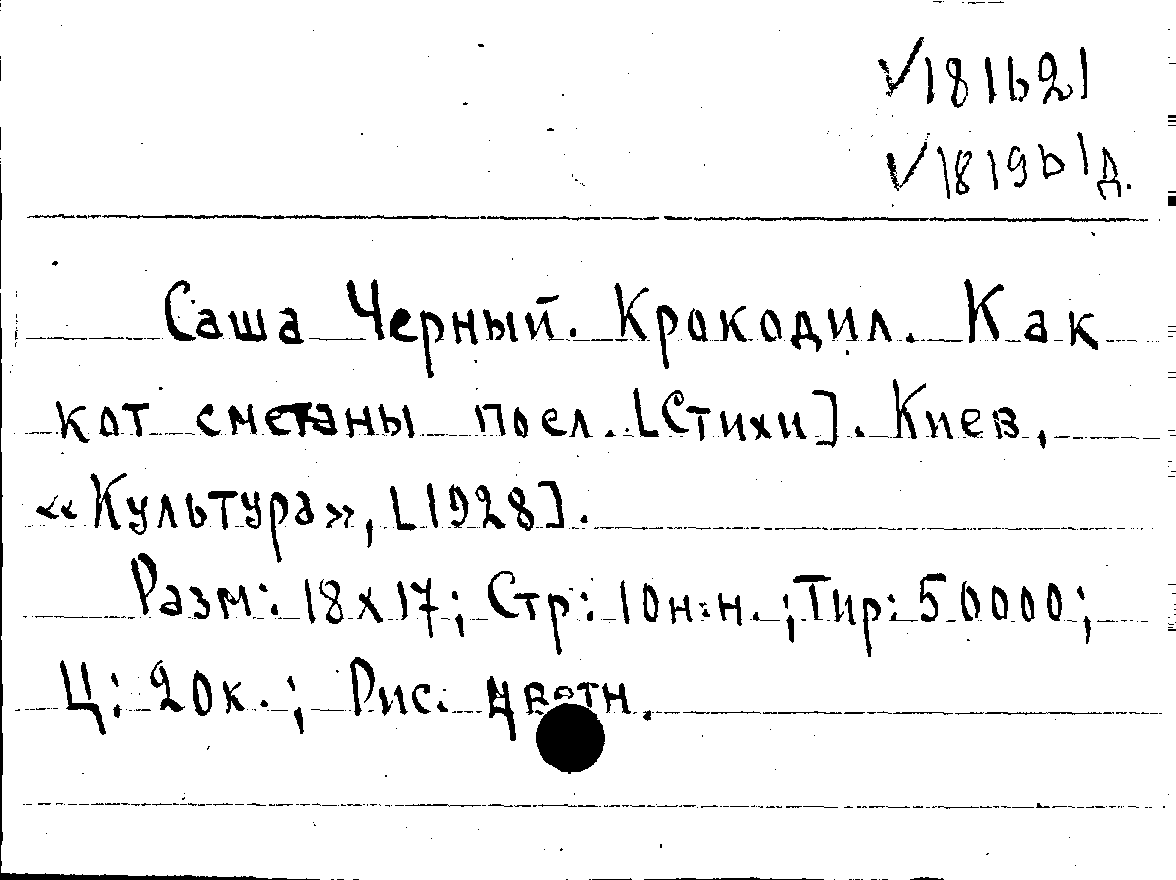 √181621
√181961д.
Саша Черный. Крокодил. Как
кот сметаны поел. [Стихи]. Киев,
«Культура», [1928].
Разм: 18х17; Стр: 10н.н.; Тир: 50000;
Ц: 20к.; Рис. цветн.